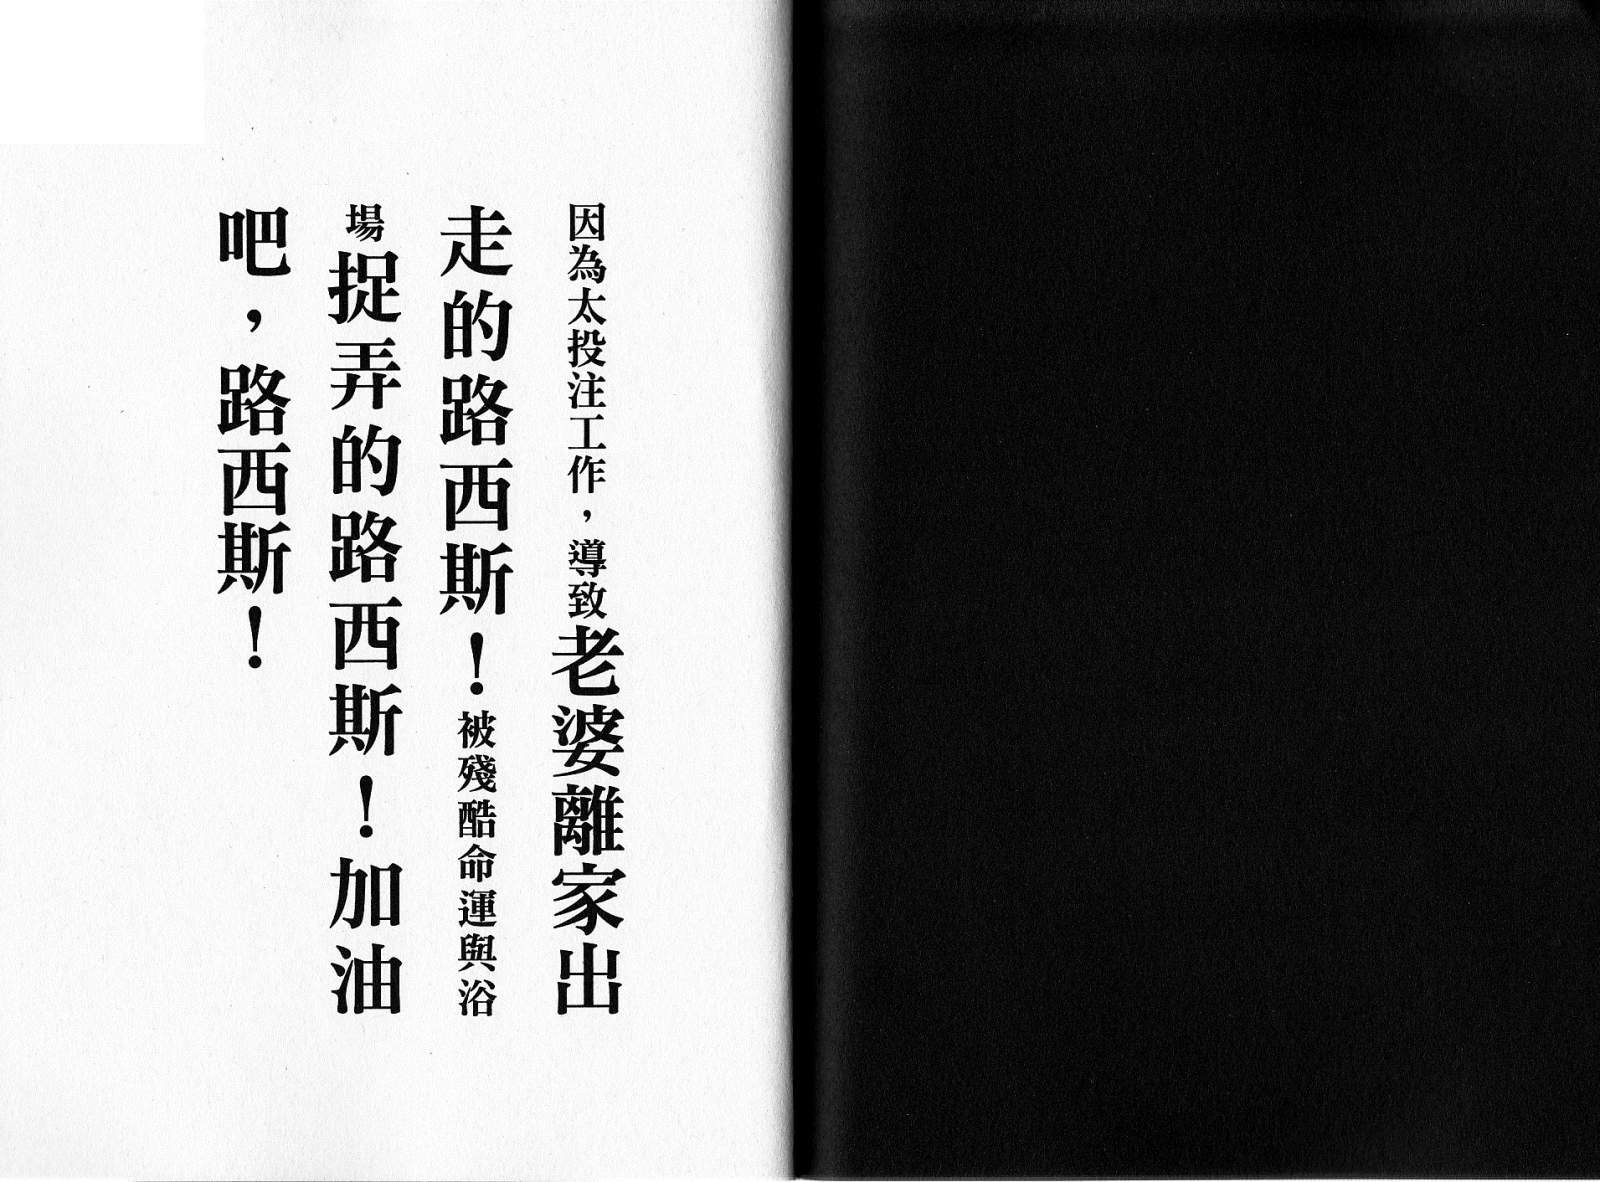 因為太投注工作，導致老婆離家出
走的路西斯！被殘酷命運與浴
場捉弄的路西斯！加油
吧，路西斯！